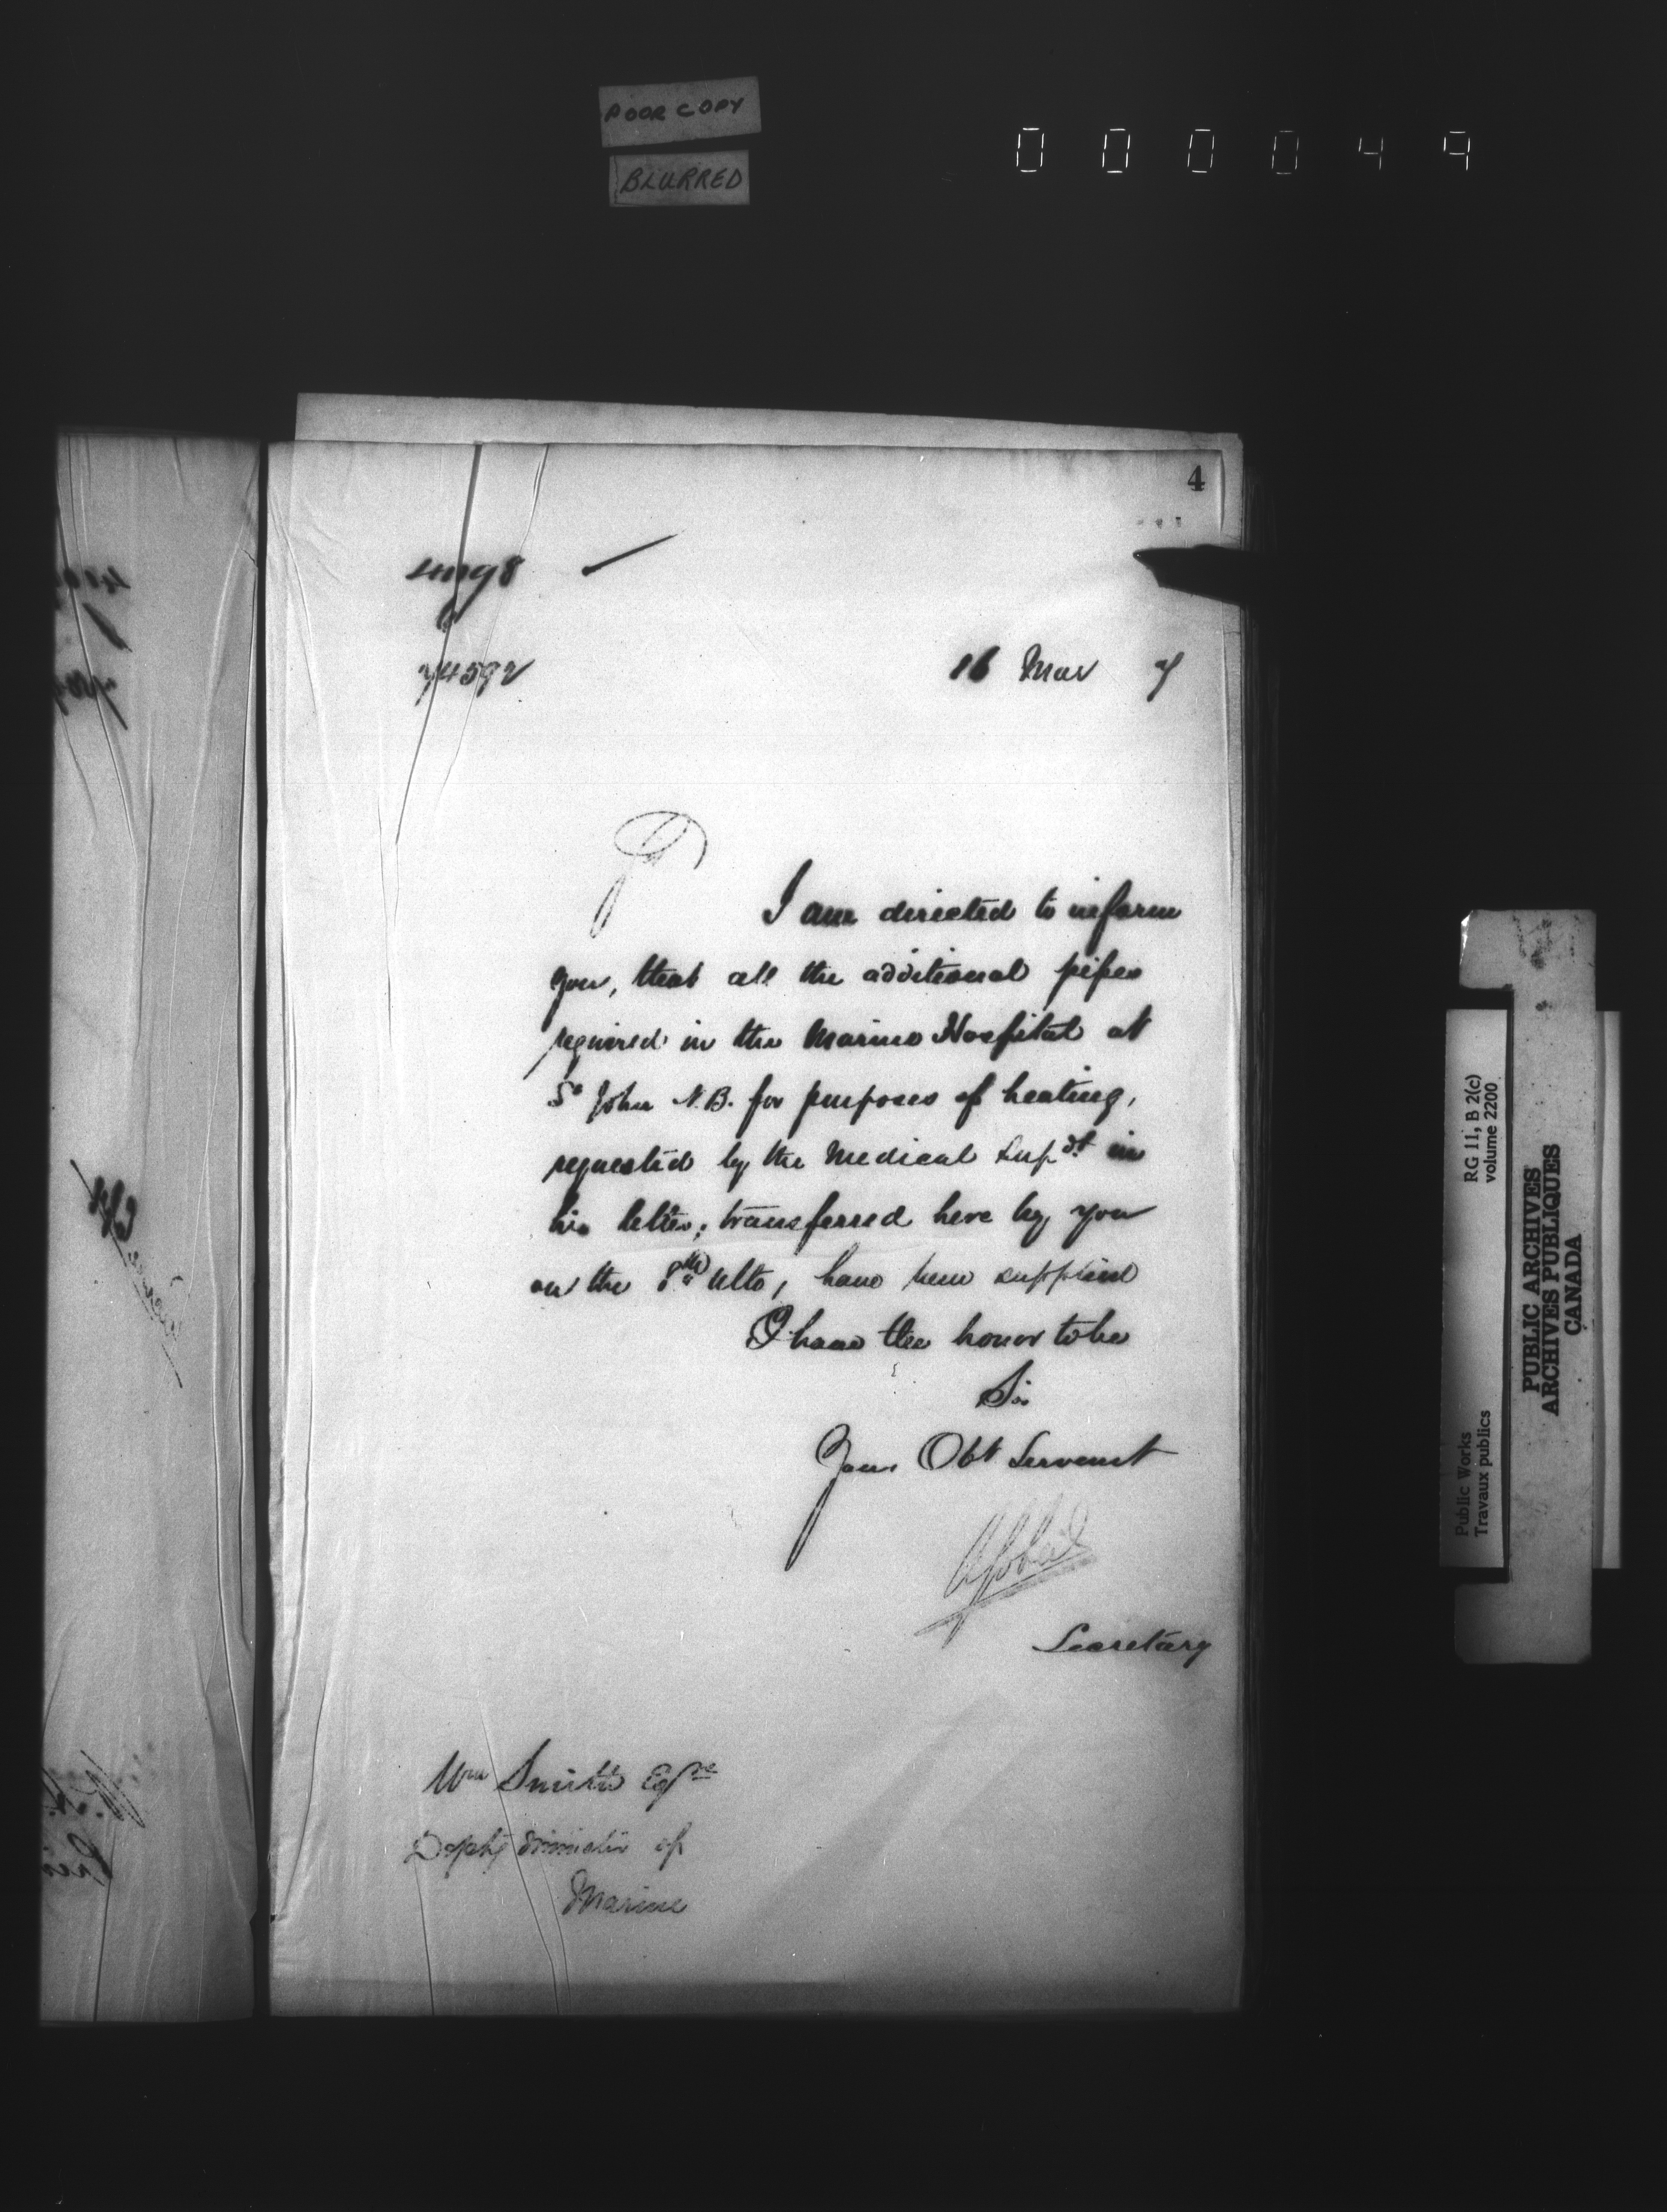 POOR COPY
BLURRED
000049
4
74592
16 Mar 7
I am directed to inform
you, that all the additional pipes
required in the Marine Hospital at
St John N.B. for purposes of heating,
requested by the Medical Supdt in
his letter, transferred here by you
on the 8th Ulto, have been supplied
I have the honor to be
Sir
Your Obt Servant
Secretary
Wm Smith Esqre
Depty Minister of
Marine
Public Works
Travaux publics
RG 11, B 2(c)
volume 2200
PUBLIC ARCHIVES
ARCHIVES PUBLIQUES
CANADA